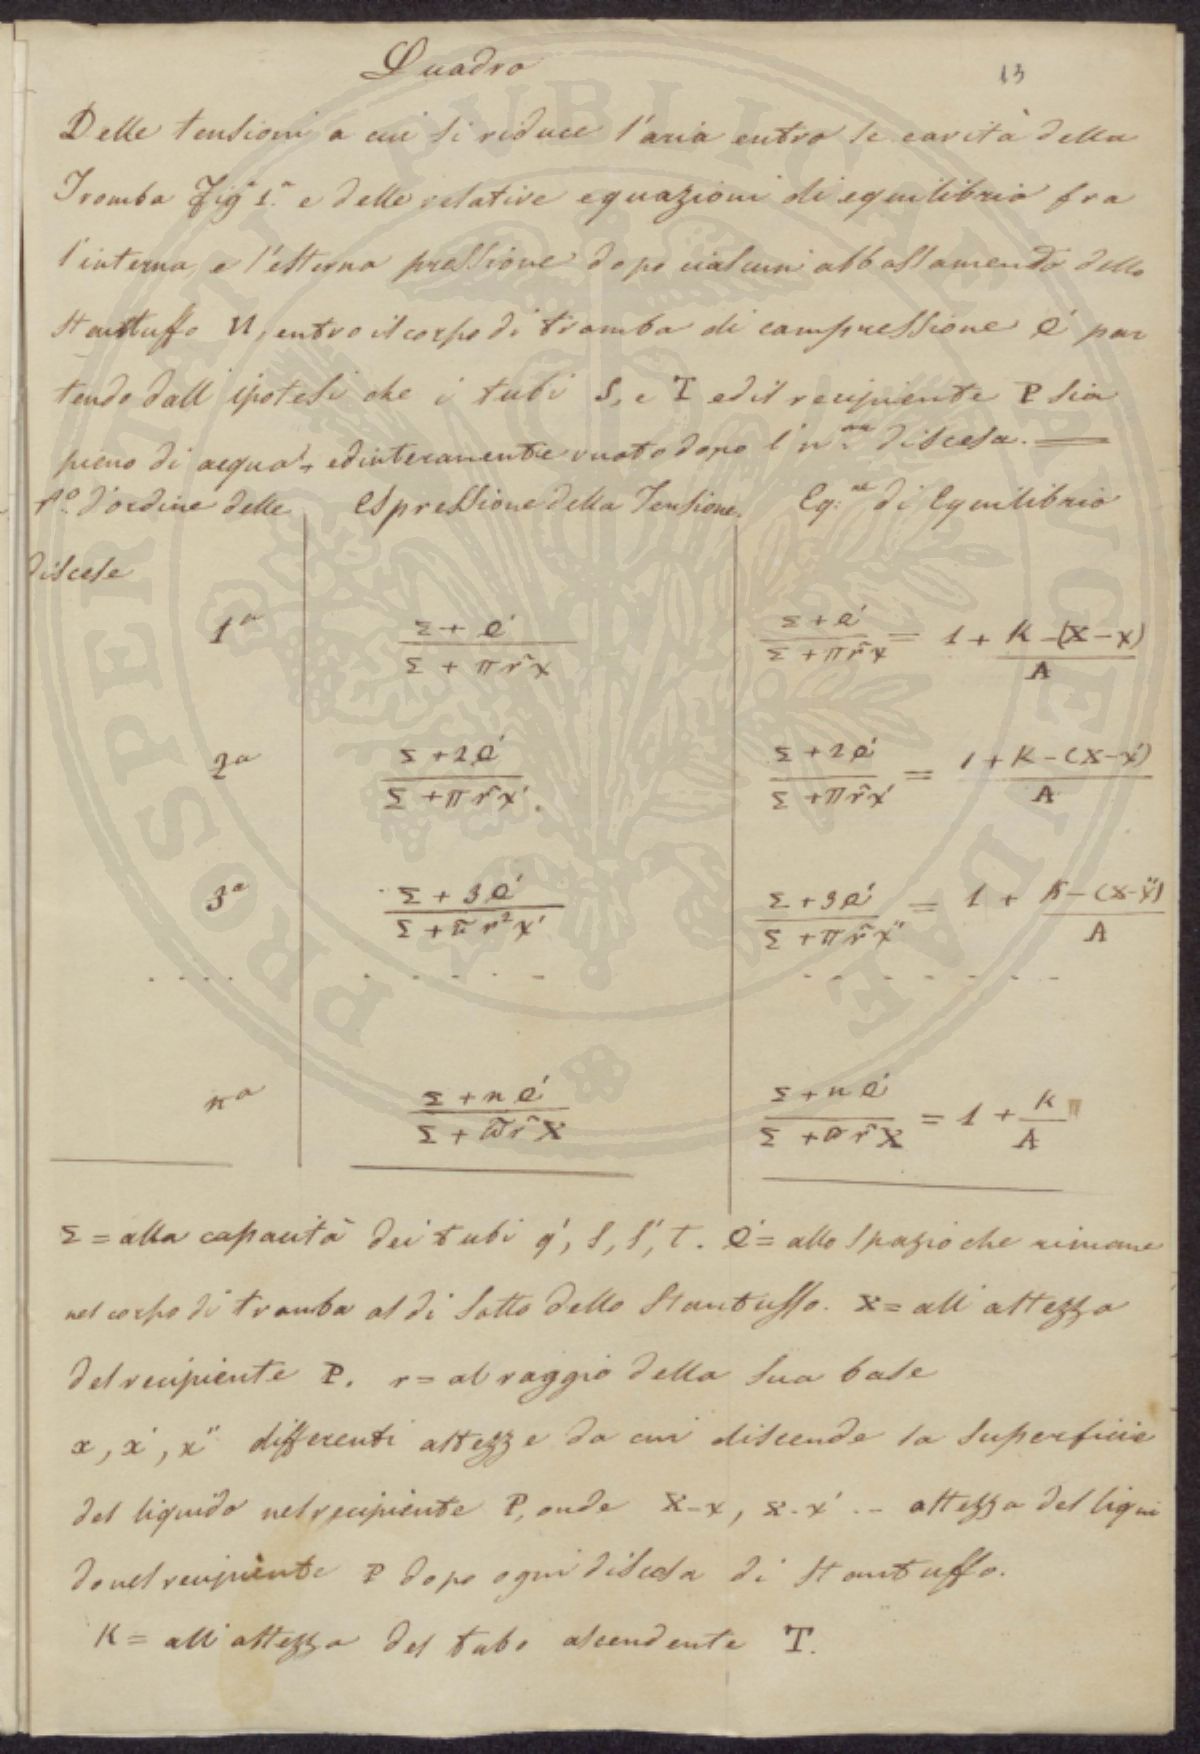 Quadro
13
Delle tensioni a cui si riduce l'aria entro le cavità della
Tromba Fig.ª 1.ª e delle relative equazioni di equilibrio fra
l'interna e l'esterna pressione dopo ciascun abbassamento dello
stantuffo U, entro il corpo di tromba di compressione Q' par
tendo dall'ipotesi che i tubi S, e T ed il recipiente P sia
pieno di acqua, ed interamente vuoto dopo l'nma discesa. —
N.º d'ordine delle | Espressione della Tensione. | Eq.ne di Equilibrio
discese
1ª | (Σ + Q')/(Σ + πr²x) | (Σ + Q')/(Σ + πr²x) = 1 + (K - (X - x))/A
2ª | (Σ + 2Q')/(Σ + πr²x'). | (Σ + 2Q')/(Σ + πr²x') = (1 + K - (X - x'))/A
3ª | (Σ + 3Q')/(Σ + πr²x') | (Σ + 3Q')/(Σ + πr²x'') = 1 + (K - (X - x''))/A
. . . . | . - - - - | - - - - - - - -
nª | (Σ + nQ')/(Σ + πr²X) | (Σ + nQ')/(Σ + πr²X) = 1 + K/A
Σ = alla capacità dei tubi q', S, S', T. Q' = allo spazio che rimane
nel corpo di tromba al di sotto dello Stantuffo. X = all'altezza
del recipiente P. r = al raggio della sua base
x, x', x'' differenti altezze da cui discende la superficie
del liquido nel recipiente P, onde X-x, X-x' .- altezza del liqui
do nel recipiente P dopo ogni discesa di stantuffo.
K = all'altezza del tubo ascendente T.
PROSPERITATI PUBLICAE AUGENDAE